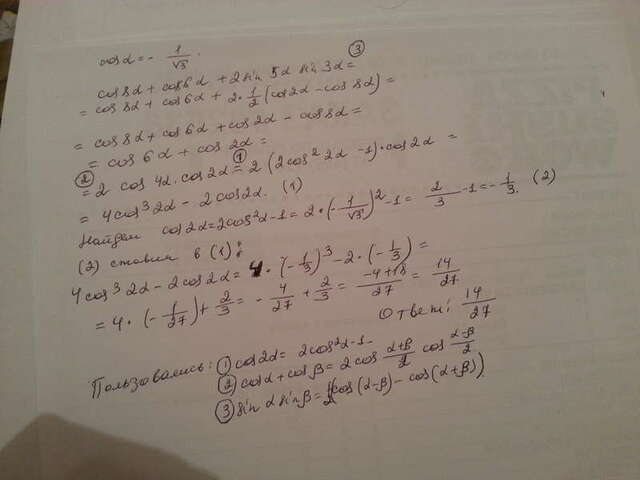 cos α = - 1/√3.
cos 8α + cos 6α + 2 sin 5α sin 3α = ③
= cos 8α + cos 6α + 2 · 1/2 (cos 2α - cos 8α) =
= cos 8α + cos 6α + cos 2α - cos 8α =
= cos 6α + cos 2α =
② = 2 cos 4α · cos 2α ①= 2 (2cos² 2α - 1) · cos 2α =
= 4 cos³ 2α - 2 cos 2α. (1)
Найдем cos 2α = 2cos² α - 1 = 2 · (- 1/√3)² - 1 = 2/3 - 1 = - 1/3. (2)
(2) ставим в (1):
4 cos³ 2α - 2 cos 2α = 4 · (- 1/3)³ - 2 · (- 1/3) =
= 4 · (- 1/27) + 2/3 = - 4/27 + 2/3 = -4+18/27 = 14/27
Ответ: 14/27
Пользовались: ① cos 2α = 2cos² α - 1 -
② cos α + cos β = 2 cos α+β/2 cos α-β/2
③ sin α sin β = 1/2 (cos (α-β) - cos (α+β))